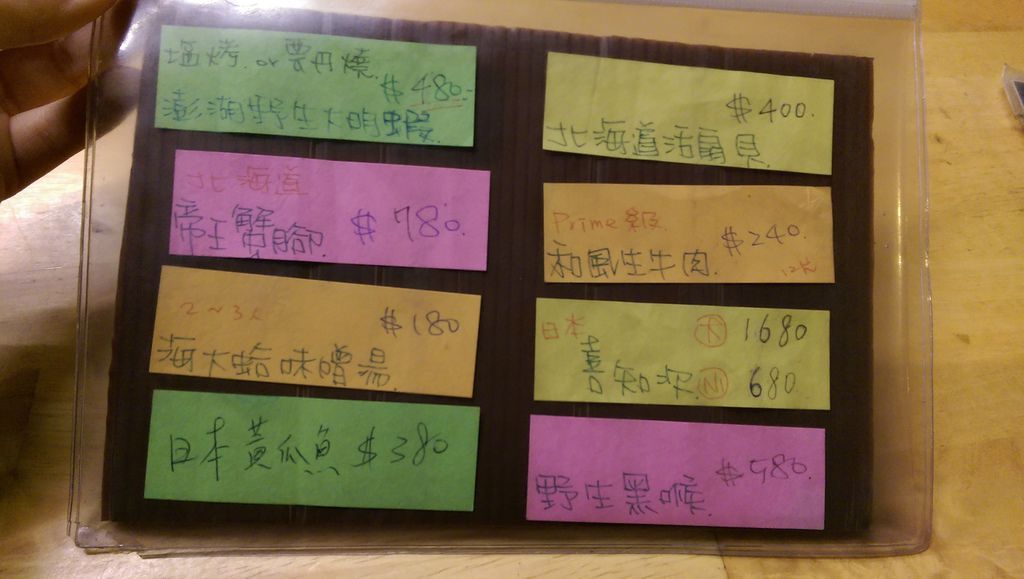 塩烤 or 雲丹燒
$480-
澎湖野生大明蝦
北海道
帝王蟹腳 $780.
2~3人
$180
海大蛤味噌湯
日本黃瓜魚 $380
$400.
北海道活扇貝
Prime級
$240.
和風生牛肉
日本 大 1680
喜知次 小 680
$580.
野生黑喉